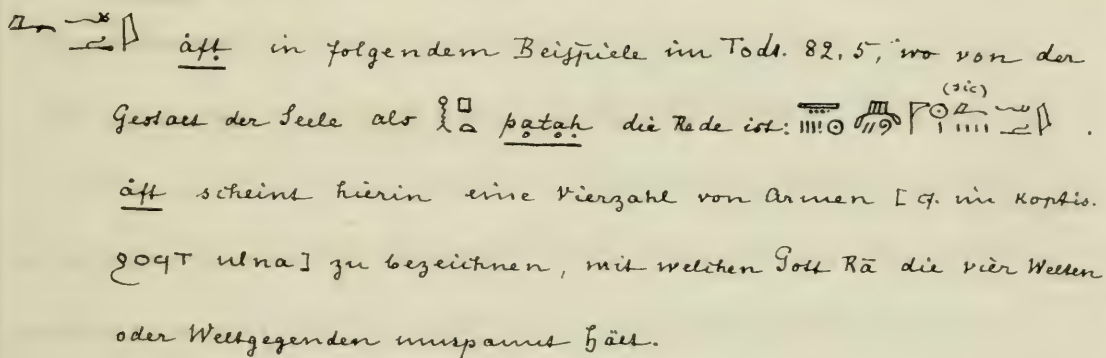 åft in folgendem Beispiele im Todt. 82, 5, wo von der
(sic)
Gestalt der Seele als patah die Rede ist: .
åft scheint hierin eine Vierzahl von Armen [cf. im Koptis.
ϩοϥⲧ ulna] zu bezeichnen, mit welchen Gott Rā die vier Welten
oder Weltgegenden umspannt hält.